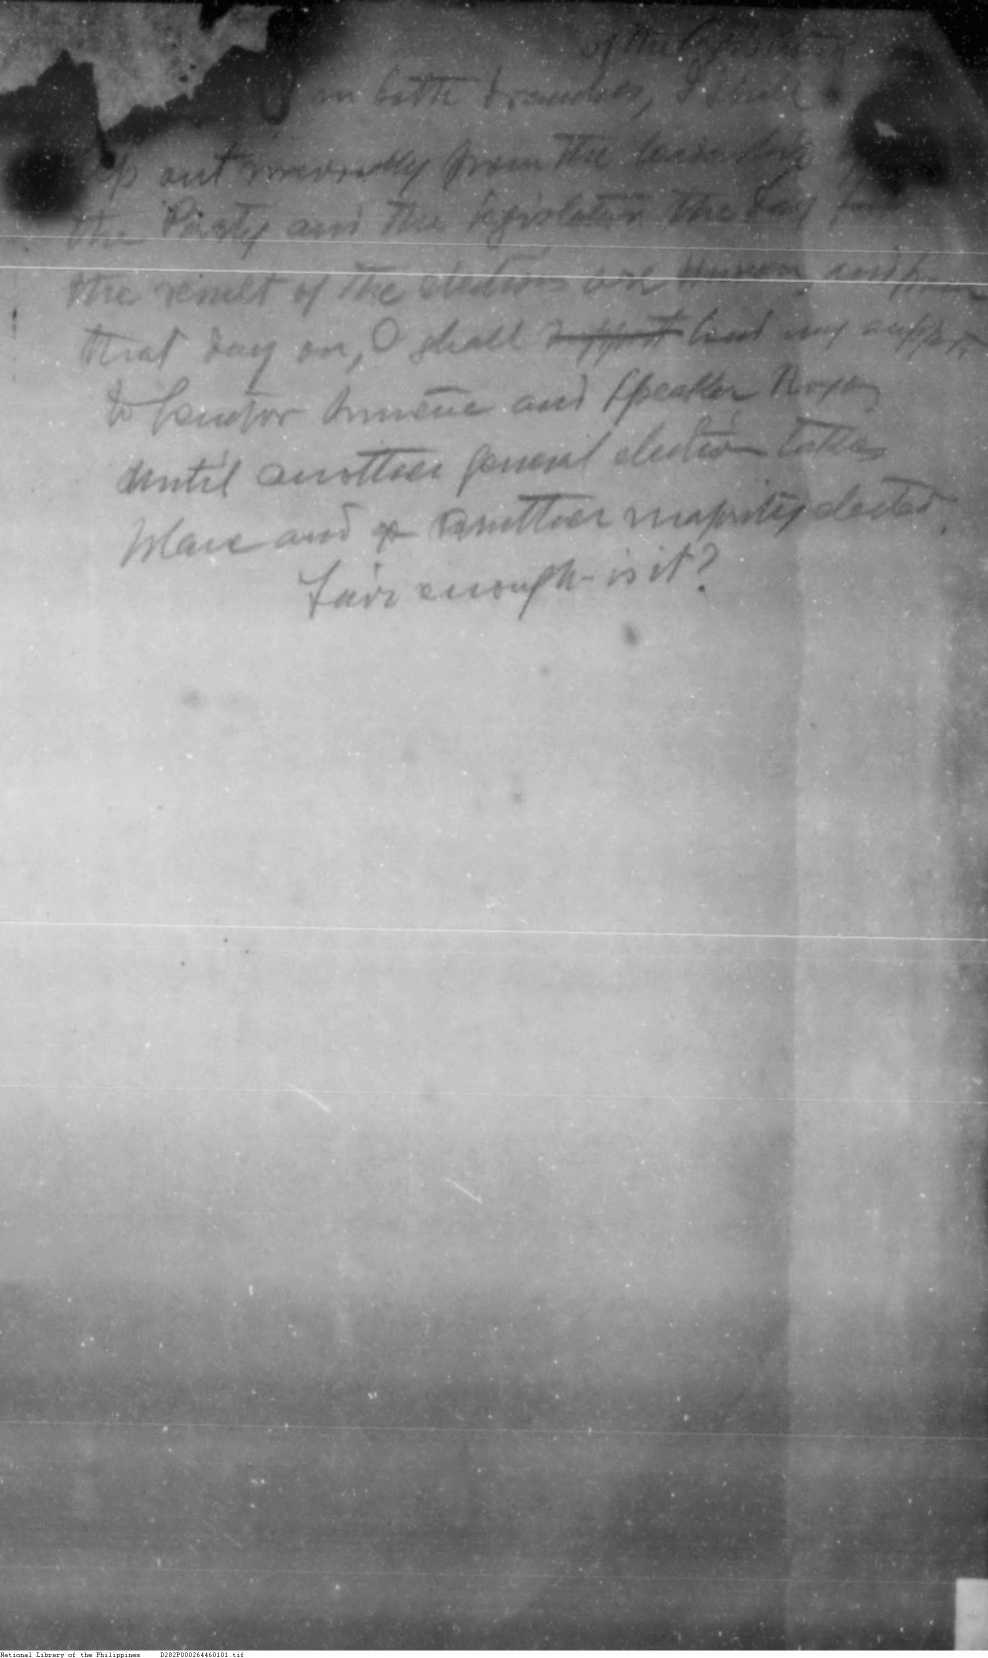 of the Legislature
in both branches, I shall
out from the leadership of
the Party and the legislature the day
the result of the elections are known and from
that day on, I shall support lend my support
to Senator and Speaker Roxas
until another general election takes
place and another majority elected.
Fair enough - is it?
National Library of the Philippines D282P000264460101.tif